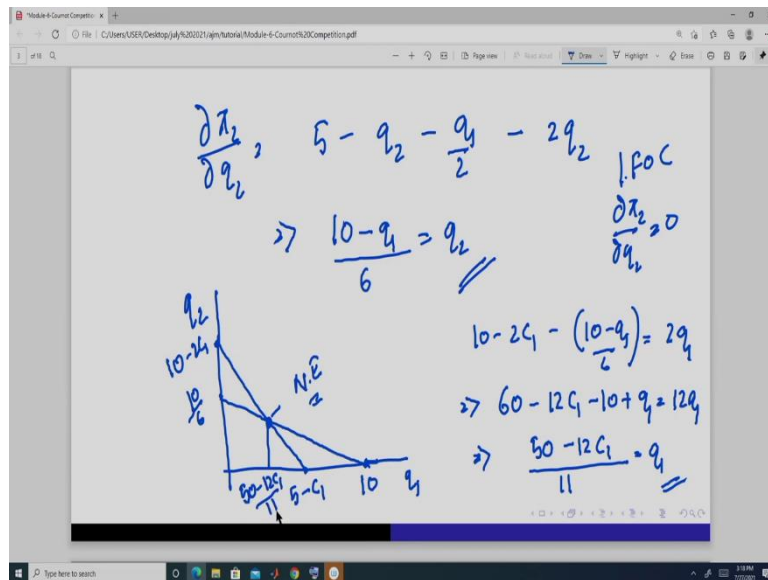 "Module-6-Cournot Competitio
File | C:/Users/USER/Desktop/july%202021/ajm/tutorial/Module-6-Cournot%20Competition.pdf
of 18
Page view
Read aloud
Draw
Highlight
Erase
∂π₂/∂q₂ , 5 - q₂ - q₁/2 - 2q₂
1. FOC
∂π₂/∂q₂ = 0
⇒ (10 - q₁)/6 = q₂
10 - 2C₁ - ((10 - q₁)/6) = 2q₁
⇒ 60 - 12C₁ - 10 + q₁ = 12q₁
⇒ (50 - 12C₁)/11 = q₁
q₂
10-2C₁
10/6
N.E
(50-12C₁)/11
5-C₁
10
q₁
Type here to search
3:18 PM
7/27/2021